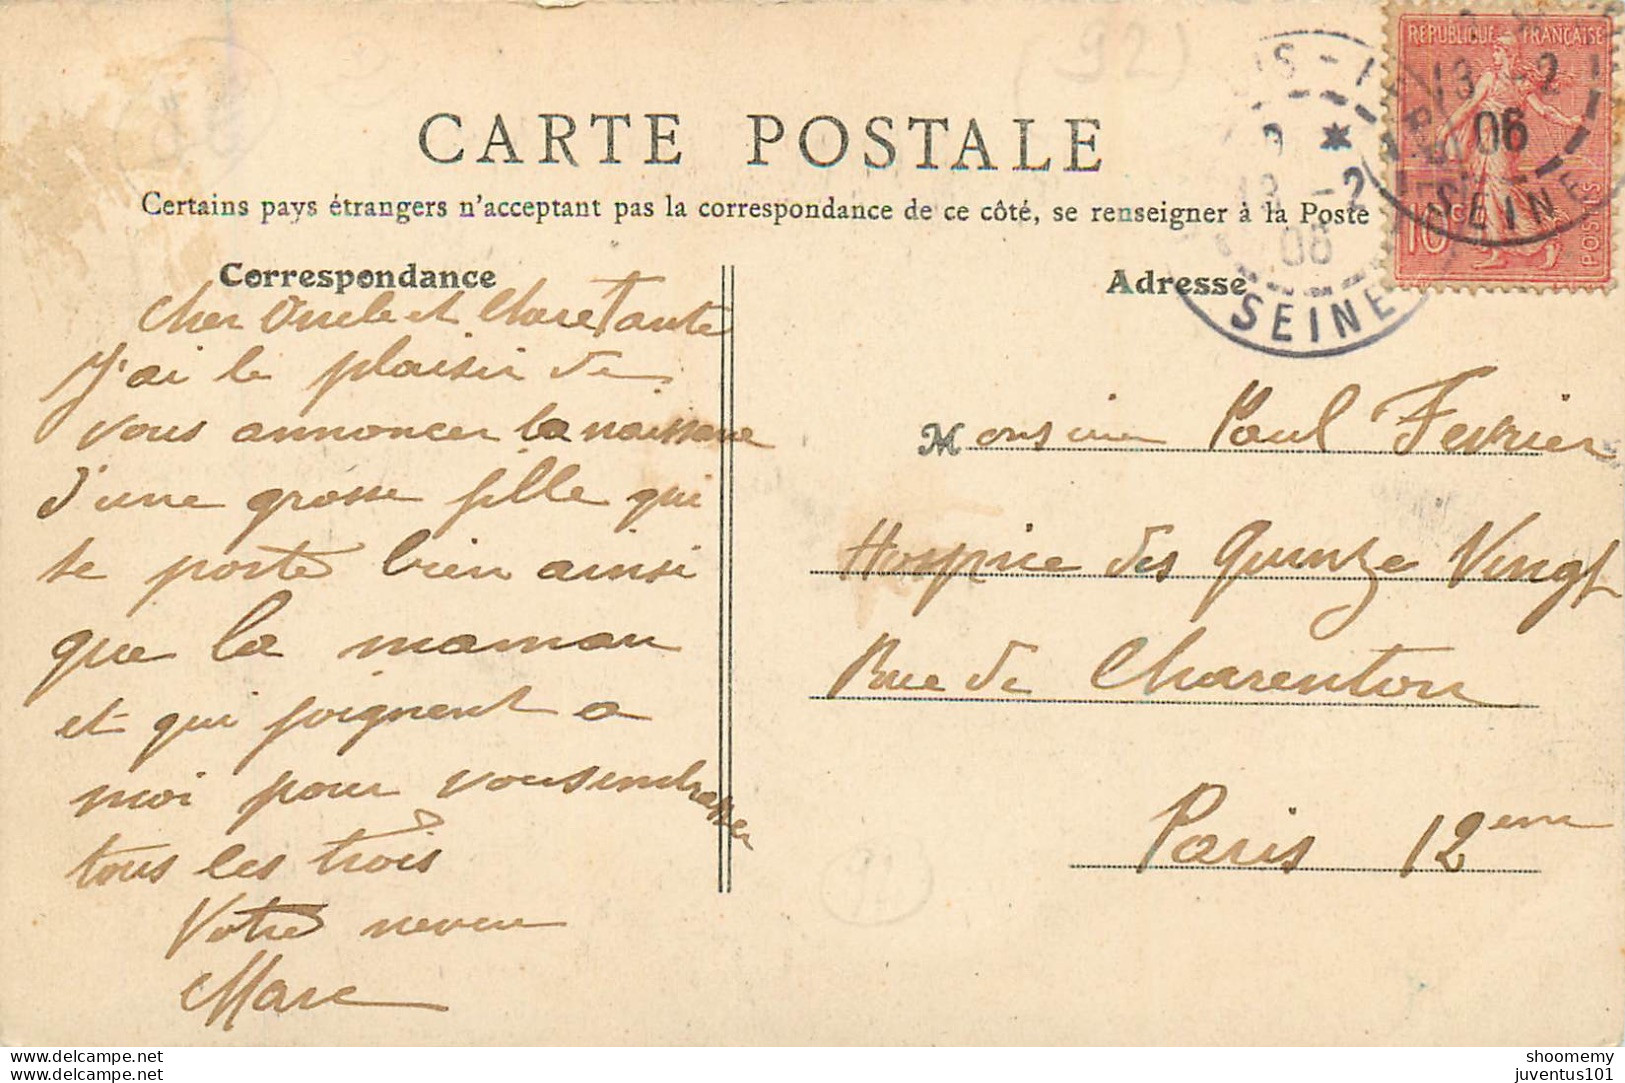 (92)
RÉPUBLIQUE FRANÇAISE
10c
POSTES
13 -2
06
SEINE
CARTE POSTALE
Certains pays étrangers n'acceptant pas la correspondance de ce côté, se renseigner à la Poste
13 -2
06
SEINE
Correspondance
Cher Oncle et Chère Tante
J'ai le plaisir de
vous annoncer la naissance
d'une grosse fille qui
se porte bien ainsi
que la maman
et qui joignent a
moi pour vous embrasser
tous les trois
Votre neveu
Marc
Adresse
Monsieur Paul Fevrier
Hospice des Quinze Vingt
Rue de Charenton
Paris 12eme
92
www.delcampe.net
www.delcampe.net
shoomemy
juventus101